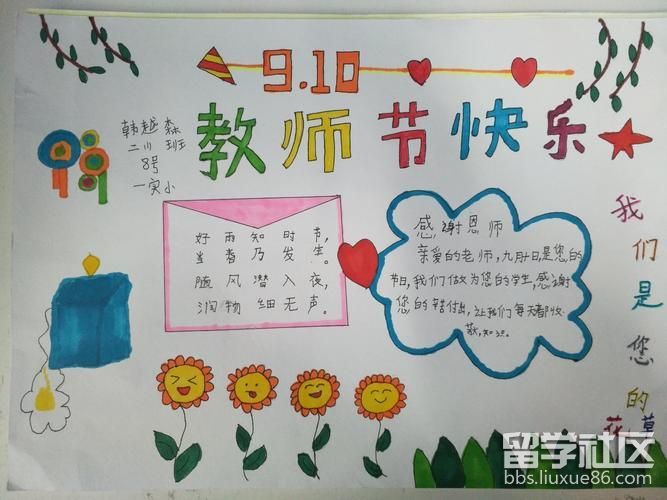 9.10
教师节快乐
韩越森
二川班
8号
一实小
好雨知时节，
当春乃发生。
随风潜入夜，
润物细无声。
感谢恩师
亲爱的老师，九月十日是您的
节日，我们做为您的学生，感谢
您的辛苦付出，让我们每天都收
获，知识。
我们是您的
花
草
留学社区
bbs.liuxue86.com